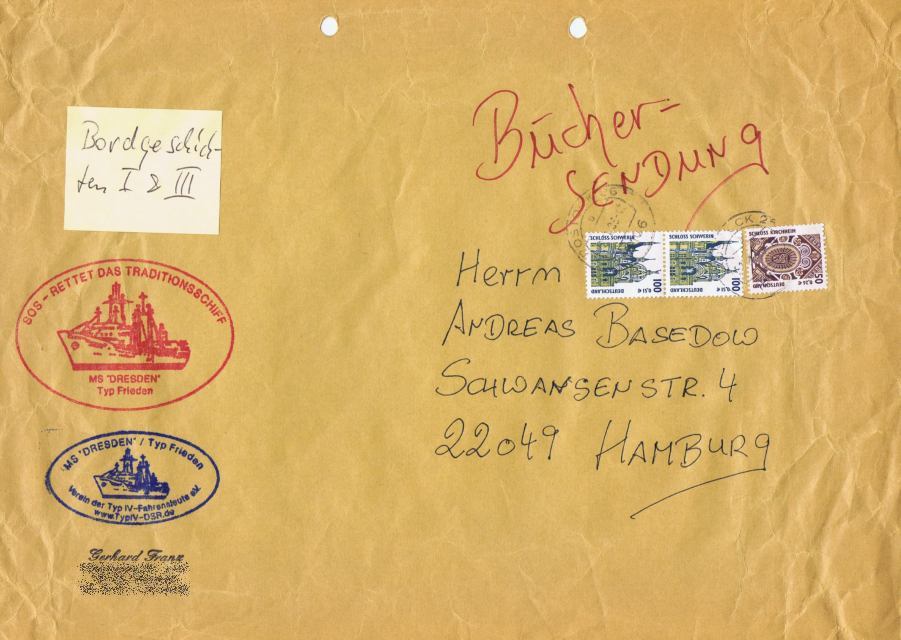 Bücher-
SENDUNG
Bordgeschich-
ten I & III
SCHLOSS SCHWERIN
DEUTSCHLAND
100
0,51 €
SCHLOSS SCHWERIN
DEUTSCHLAND
100
0,51 €
DEUTSCHLAND
50
0,26 €
Herrn
ANDREAS BASEDOW
SCHWANSENSTR. 4
22049 HAMBURG
SOS - RETTET DAS TRADITIONSSCHIFF
MS "DRESDEN"
Typ Frieden
MS "DRESDEN" / Typ Frieden
Verein der Typ IV-Fahrensleute e.V.
www.TypIV-DSR.de
Gerhard Franz